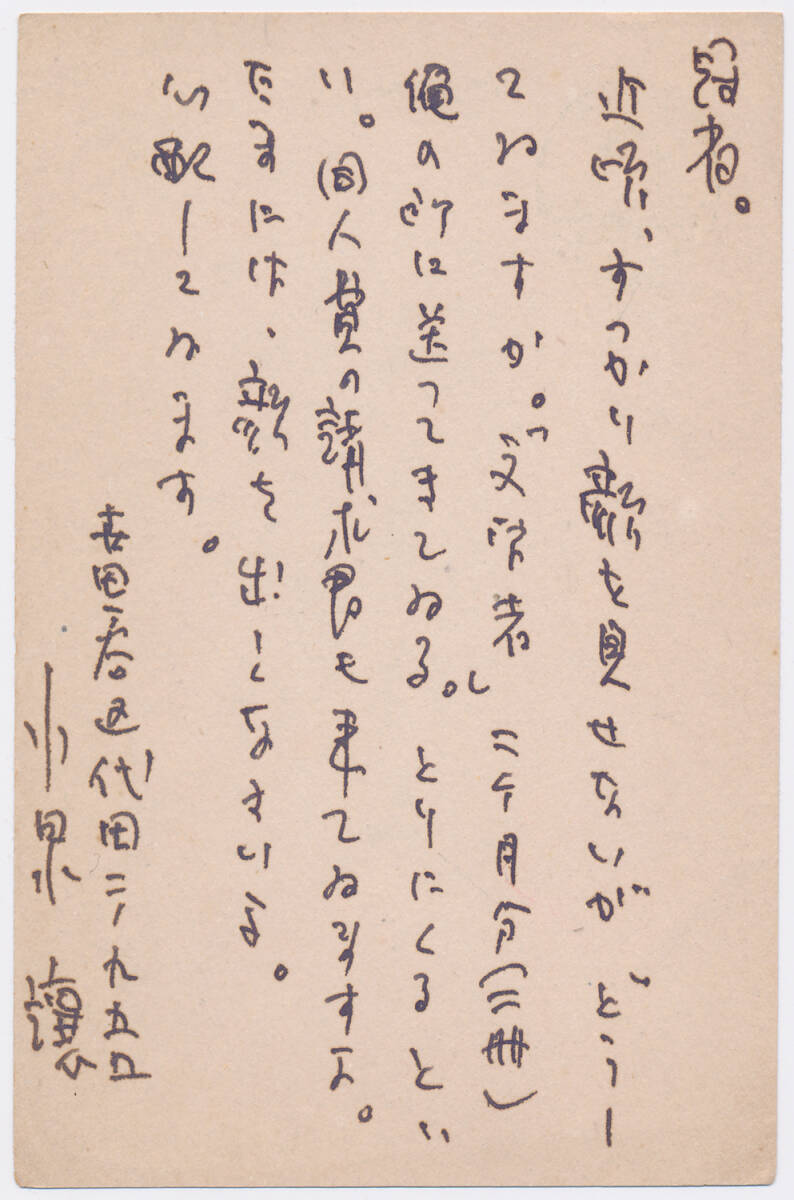 冠省。
近頃、すつかり顔を見せないが、どうし
てゐますか。「文学者 二ヶ月分(二冊)
俺の所に送つてきてゐる。」とりにくるとい
い。同人費の請求書も来てゐますよ。
たまには、顔を出しなさいよ。
心配してゐます。
世田谷区代田二ノ九五〇
小泉 譲